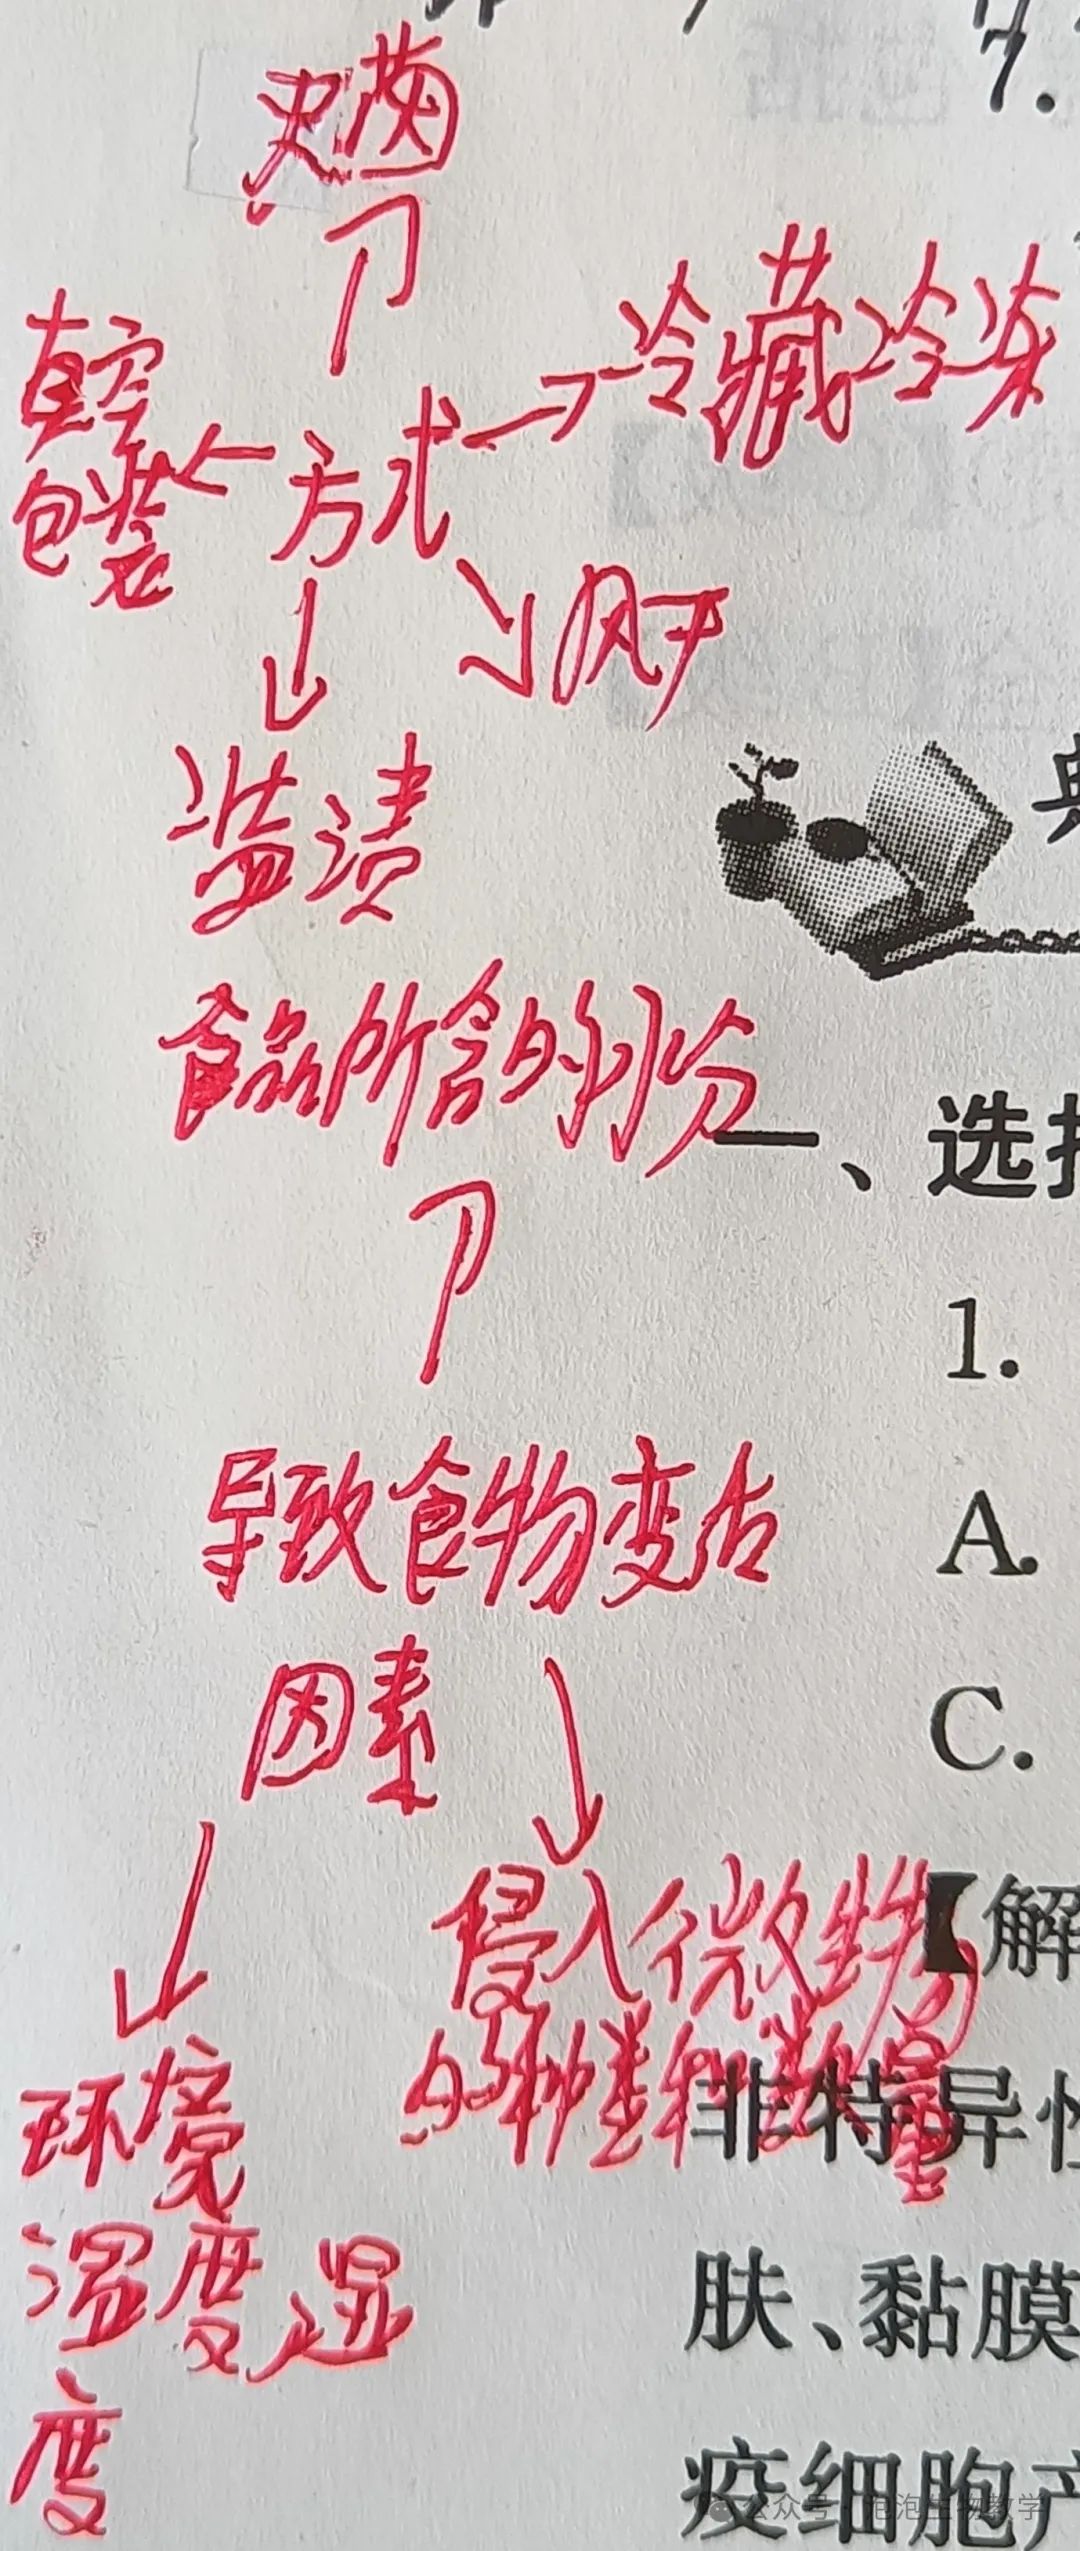 7.
灭菌
真空
包装
方式
冷藏冷冻
风干
盐渍
典
食物所含的水份
一、选择
1.
导致食物变占
A.
因素
C.
侵入微生物
的种类和数量
【解
非特异性
环境
温度湿
度
肤、黏膜
疫细胞产
公众号·泡泡生物教学